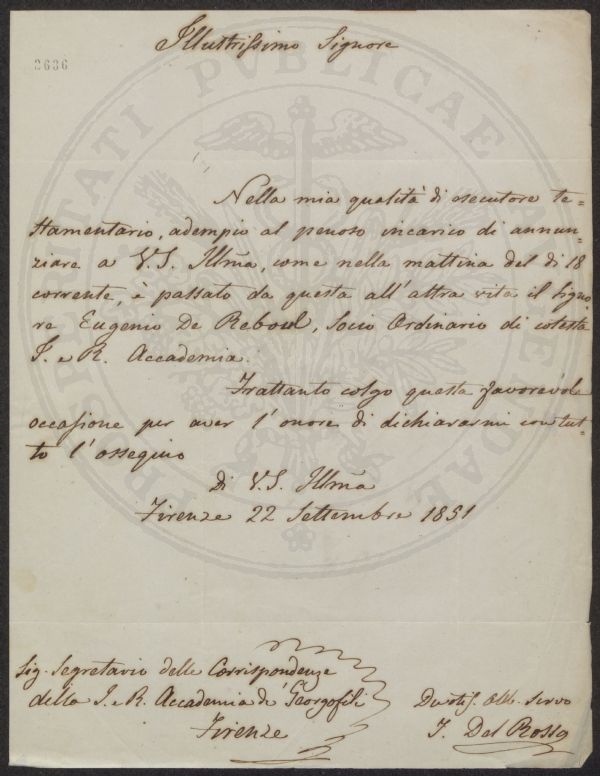 Illustrissimo Signore
2636
PROSPERITATI PVBLICAE AVGENDAE
Nella mia qualità di esecutore te=
stamentario, adempio al penoso incarico di annun=
ziare a V.S. Illm̃a, come nella mattina del dì 18
corrente, è passato da questa all'altra vita il Signo
re Eugenio De Reboul, Socio Ordinario di cotesta
I. e R. Accademia.
Frattanto colgo questa favorevole
occasione per aver l'onore di dichiararmi con tut=
to l'ossequio
Di V.S. Illm̃a
Firenze 22 Settembre 1851
Sig. Segretario delle Corrispondenze
della I. e R. Accademia de' Georgofili
Firenze
Devotis. Obb. Servo
Del Rosso